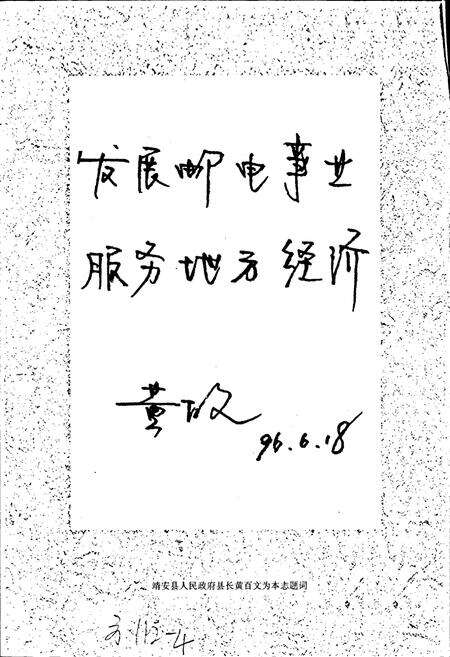 发展邮电事业
服务地方经济
黄百文
96.6.18
靖安县人民政府县长黄百文为本志题词